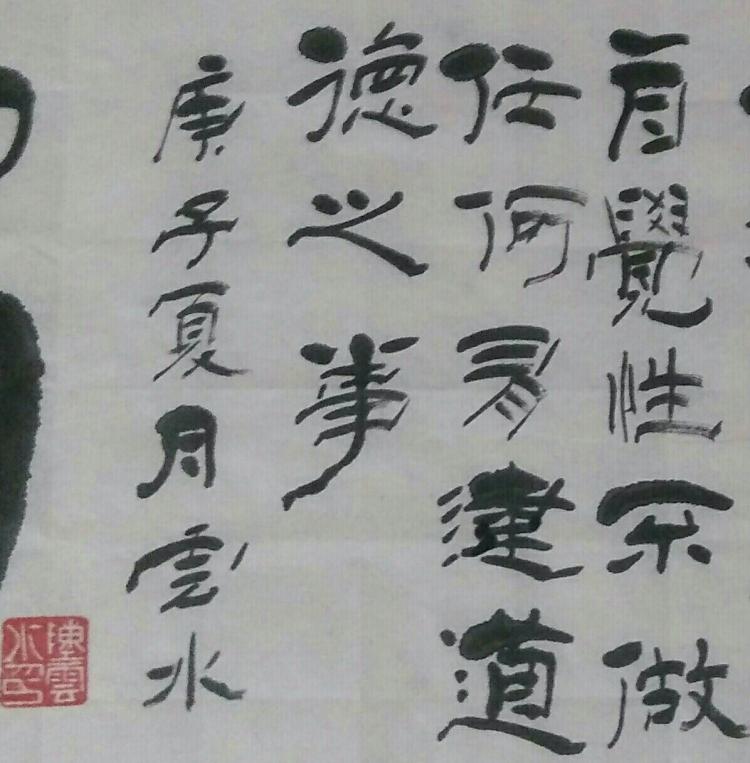 自覺性不做
任何有違道
德之事
庚子夏月雲水
陳雲水印